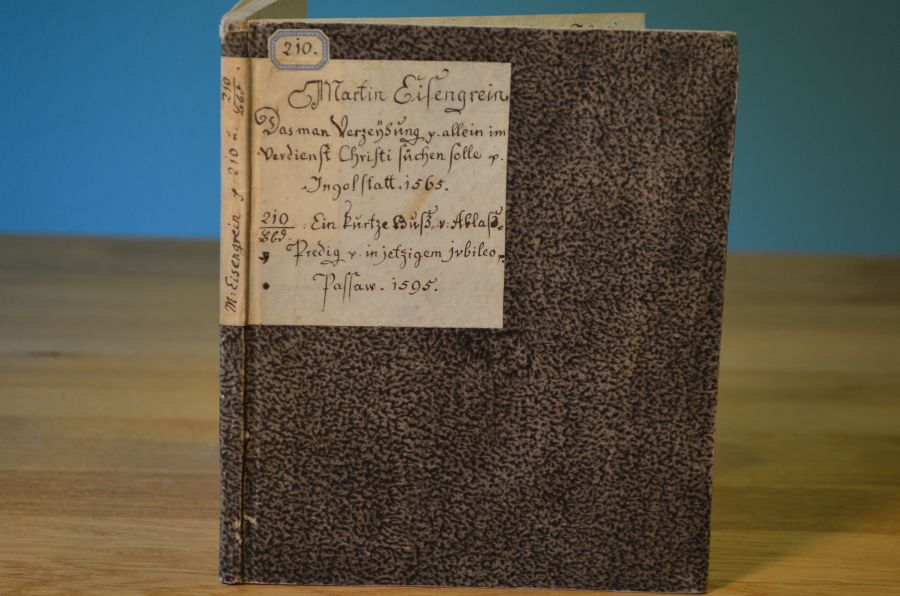 210.
Martin Eisengrein
Das man Verzeÿhung allein im
verdienst Christi sůchen solle
Ingolstatt. 1565.
210 : Ein kurtze Busz v: Ablasz
Predig in jetzigem jvbileo,
Passaw. 1595.
M: Eisengrein 210 u. 210